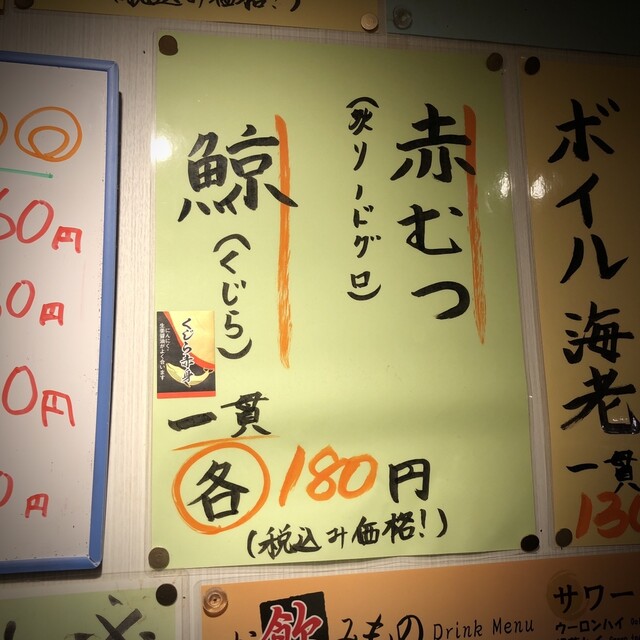 (税込み価格!)
赤むつ
鯨(くじら)
くじら赤身
にんにく
生姜醤油がよく合います
一貫
各180円
(税込み価格!)
ボイル海老
一貫
130
60円
0円
0円
0円
飲みもの Drink Menu
サワー
ウーロンハイ